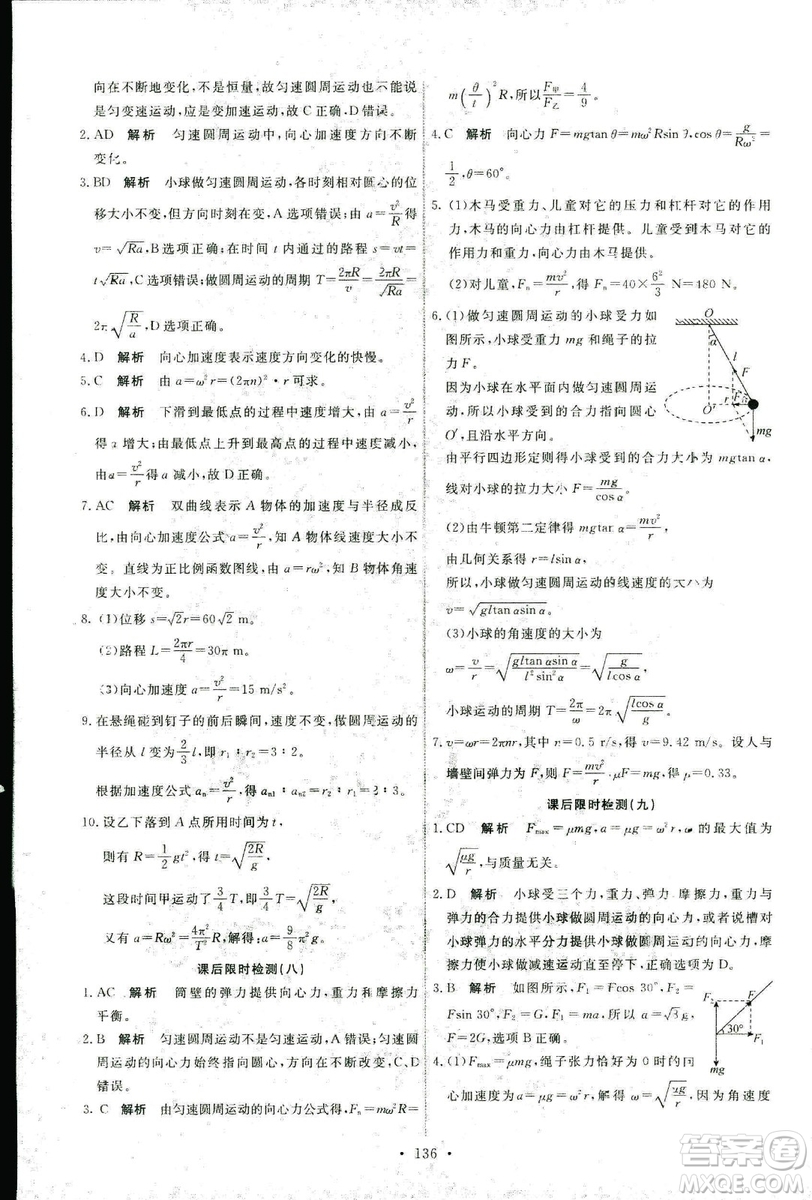 向在不断地变化,不是恒量,故匀速圆周运动也不能说
是匀变速运动,应是变加速运动,故 C 正确,D 错误。
2. AD 解析 匀速圆周运动中,向心加速度方向不断
变化。
3. BD 解析 小球做匀速圆周运动,各时刻相对圆心的位
移大小不变,但方向时刻在变,A 选项错误;由 a=v²/R 得
v=√(Ra),B 选项正确;在时间 t 内通过的路程 s=vt=
t√(Ra),C 选项错误;做圆周运动的周期 T=2πR/v=2πR/√(Ra)=
2π√(R/a),D 选项正确。
4. D 解析 向心加速度表示速度方向变化的快慢。
5. C 解析 由 a=ω²r=(2πn)²·r 可求。
6. D 解析 下滑到最低点的过程中速度增大,a=v²/r
得 a 增大;由最低点上升到最高点速度减小,由 a
=v²/r 得 a 减小,故 D 正确。
7. AC 解析 双曲线表示 A 物体的加速度与半径成反
比,由向心加速度公式 a=v²/r,知 A 物体线速度大小不
变。直线为正比例函数图线,由 a=rω²,知 B 物体角速
度大小不变。
8. (1)位移 s=√2r=60√2 m。
(2)路程 L=2πr/4=30π m。
(3)向心加速度 a=v²/r=15 m/s²。
9. 在悬绳碰到钉子的前后瞬间,速度不变,做圆周运动的
半径从 l 变为 2/3 l,即 r₁∶r₂=3∶2。
根据加速度公式 aₙ=v²/r,有 aₙ₁∶aₙ₂=r₂∶r₁=2∶3。
10. 设乙下落到 A 点所用时间为 t,
则有 R=1/2 gt²,得 t=√(2R/g)
这段时间甲运动了 3/4 T,即 3/4 T=√(2R/g)
又有 a=Rω²=4π²/T² R,解得:a=9/8 π²g。
课后限时检测(八)
1. AC 解析 筒壁的弹力提供向心力,重力和摩擦力
平衡。
2. B 解析 匀速圆周运动不是匀速运动,是匀速圆周
周运动的向心力始终指向圆心,方向不断改变,C、D
错误。
3. C 解析 由匀速圆周运动的向心力公式得,Fₙ=mω²R=
m(θ/t)²R,所以F甲/F乙=4/9。
4. C 解析 向心力 F=mgtan θ=mω²Rsin θ,cos θ=g/(Rω²)=
1/2,θ=60°。
5. (1)木马受重力、儿童对它的压力和杠杆对它的作用
力,木马的向心力由杠杆提供。儿童受到木马对它的
作用力和重力,向心力由木马提供。
(2)对儿童,Fₙ=mv²/r,得 Fₙ=40×6²/3 N=480 N。
6. (1)做匀速圆周运动的小球受力如
图所示,小球受重力 mg 和绳子的拉
力 F。
因为小球在水平面内做匀速圆周运
动,所以小球受到的合力指向圆心
O′,且沿水平方向。
由平行四边形定则得小球受到的合力大小为 mgtan α,
线对小球的拉力大小为 F=mg/cos α。
(2)由牛顿第二定律得 mgtan α=mv²/r
由几何关系得 r=lsin α
所以,小球做匀速圆周运动的线速度的大小为
v=√(gltan αsin α)
(3)小球的角速度的大小为
ω=v/r=√(gltan αsin α)/(l²sin² α)=√(g/(lcos α))
小球运动的周期 T=2π/ω=2π√(lcos α/g)。
7. v=ωr=2πnr,其中 n=0.5 r/s,得 v=9.42 m/s。设人与
墙壁间弹力为 F,则 F=mv²/r,所以 μF=mg,μ=0.33。
课后限时检测(九)
1. CD 解析 Fmax=μmg,μmg=mω²r,故 ω 的最大值为
√(μg/r),与质量无关。
2. D 解析 小球受三个力,重力、弹力、摩擦力,重力与
弹力的合力提供小球做圆周运动的向心力,或者说成
小球弹力的水平分力提供小球做圆周运动的向心力。
小球由于摩擦力的作用做减速运动直至停下,D 正确。
3. B 解析 如图所示,F₁=Fcos 30°,F₂=
Fsin 30°,F₂=G,F₁=ma,所以 a=√3g,
F=2G,选项 B 正确。
4. (1)Fmax=μmg,绳子张力恰好为 0 时的向
心力加速度 a=v²/r,μmg=ma,解得 v=√(μgr),角速度
O
α
l
F
r
F合
O′
mg
F₂
F
30°
F₁
mg
136
答案圈